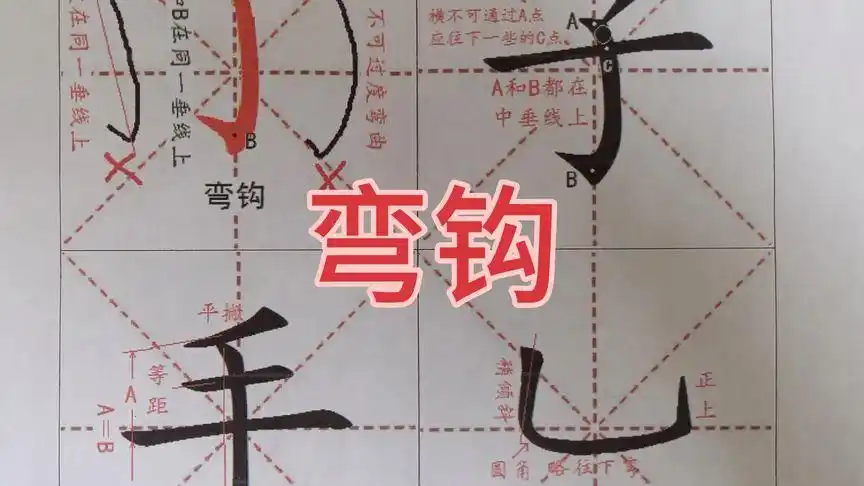 在同一垂线上
和B在同一垂线上
B
不可过度弯曲
弯钩
横不可通过A点
应往下一些的C点
A
C
子
A和B都在
中垂线上
B
弯钩
平撇
等距
A
A=B
手
稍倾斜
正上
圆角 略往下弯